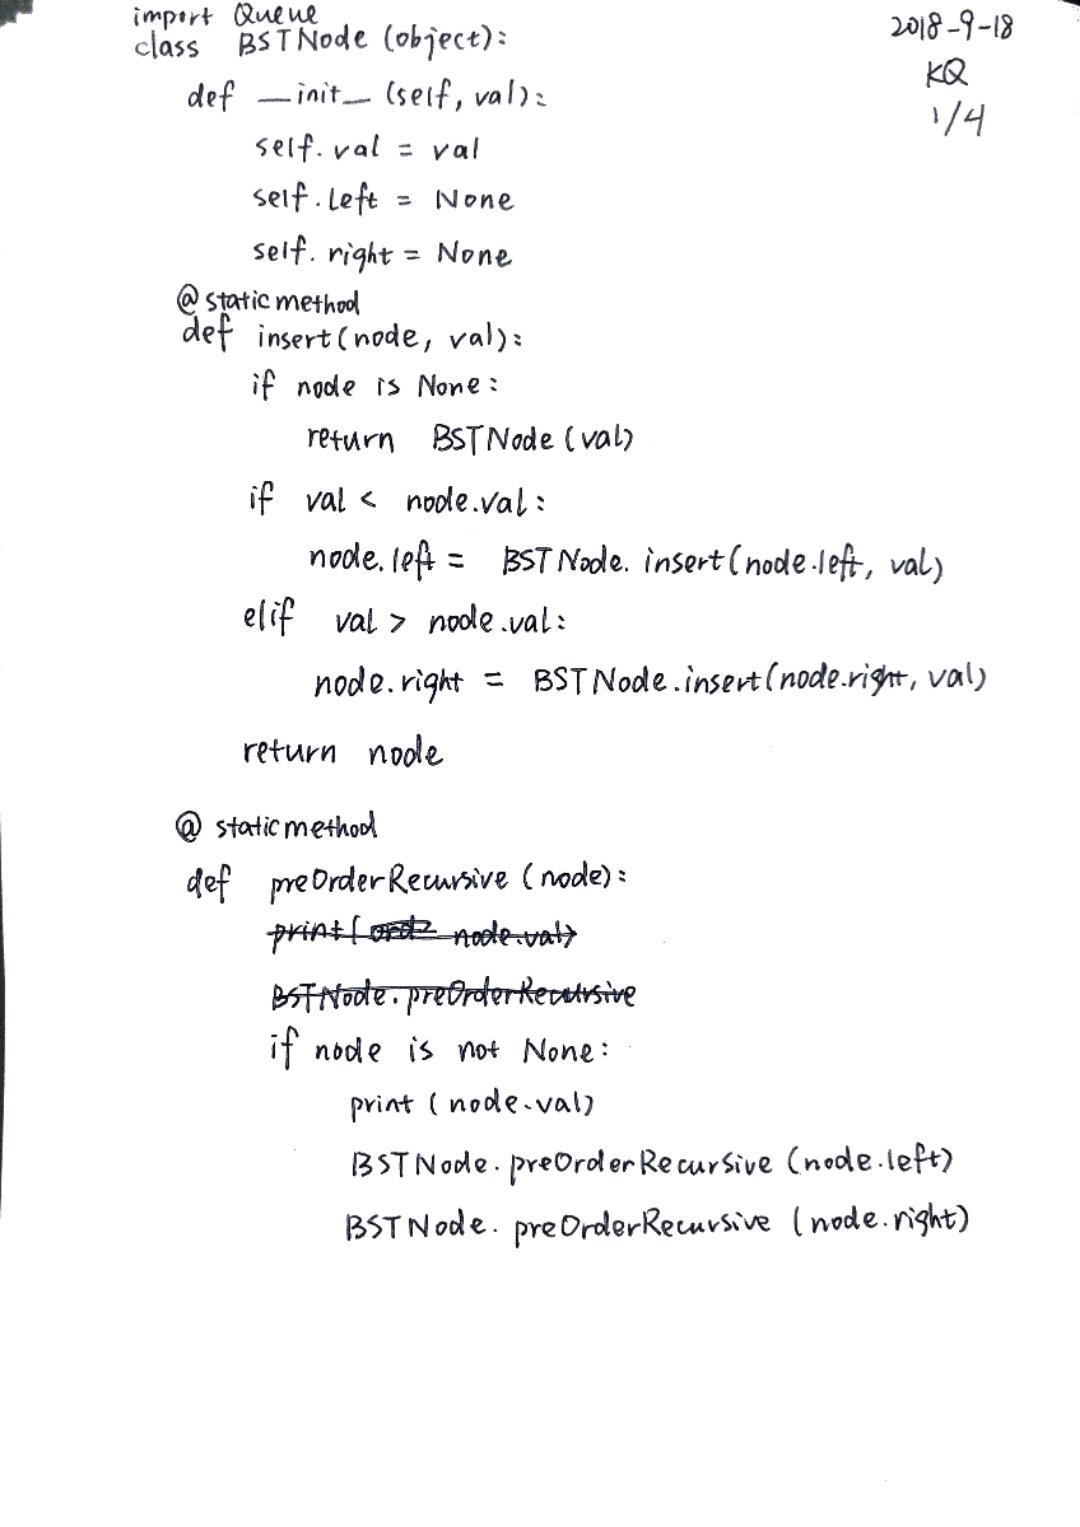 import Queue
class BSTNode (object):
2018-9-18
KQ
1/4
def __init__ (self, val):
self.val = val
self.left = None
self.right = None
@staticmethod
def insert(node, val):
if node is None:
return BSTNode(val)
if val < node.val:
node.left = BSTNode.insert(node.left, val)
elif val > node.val:
node.right = BSTNode.insert(node.right, val)
return node
@staticmethod
def preOrderRecursive (node):
print( node.val)
BSTNode.preOrderRecursive
if node is not None:
print (node.val)
BSTNode.preOrderRecursive (node.left)
BSTNode.preOrderRecursive (node.right)